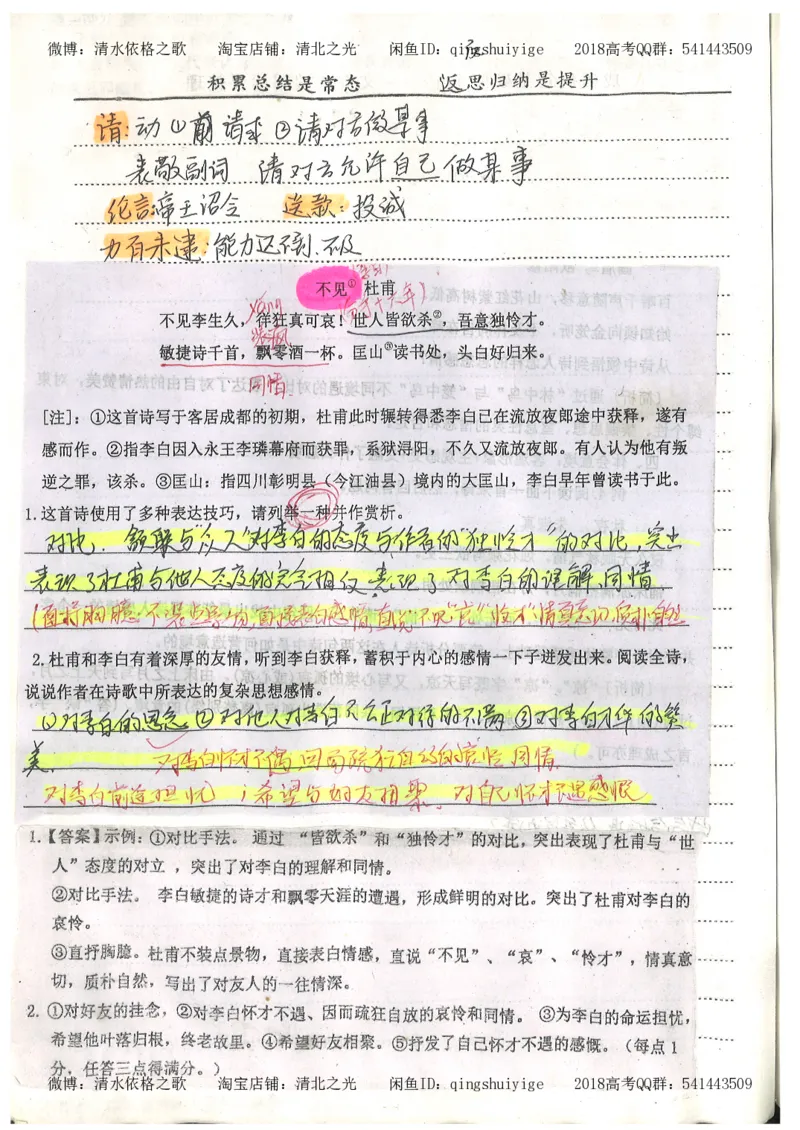 微博：清水依格之歌 淘宝店铺：清北之光 闲鱼ID：qingshuiyige 2018高考QQ群：541443509
积累总结是常态 返思归纳是提升
请：动 ① 请求 ②请对方做某事
表敬副词 请对方允许自己做某事
伦言：帝王诏令 送款：投诚
力有未逮：能力达不到、不及
不见① 杜甫
不见李生久，佯狂真可哀！世人皆欲杀②，吾意独怜才。
yáng
敏捷诗千首，飘零酒一杯。匡山③读书处，头白好归来。
同情
[注]：①这首诗写于客居成都的初期，杜甫此时辗转得悉李白已在流放夜郎途中获释，遂有
感而作。②指李白因入永王李璘幕府而获罪，系狱浔阳，不久又流放夜郎。有人认为他有叛
逆之罪，该杀。③匡山：指四川彰明县（今江油县）境内的大匡山，李白早年曾读书于此。
1.这首诗使用了多种表达技巧，请列举一种并作赏析。
对比．领联与“众人”对李白的态度与作者的“独怜才”的对比，突出
表现了杜甫与他人态度的完全相反．表现了对李白的理解、同情
（直抒胸臆 不装点景物，直接表白感情，直说“不见”“哀”“怜才”情真意切，质朴自然
2.杜甫和李白有着深厚的友情，听到李白获释，蓄积于内心的感情一下子迸发出来。阅读全诗，
说说作者在诗歌中所表达的复杂思想感情。
①对李白的思念 ②对他人对李白不公正对待的不满 ③对李白才华的赞
美． 对李白怀才不遇，因而疏狂自放的哀怜 同情
对李白前途担忧 ；希望与好友相聚．对自己怀才不遇感慨
1.【答案】示例：①对比手法。 通过 “皆欲杀”和“独怜才”的对比，突出表现了杜甫与“世
人”态度的对立 ，突出了对李白的理解和同情。
②对比手法。 李白敏捷的诗才和飘零天涯的遭遇，形成鲜明的对比。突出了杜甫对李白的
哀怜。
③直抒胸臆。杜甫不装点景物，直接表白情感，直说“不见”、“哀”、“怜才”，情真意
切，质朴自然，写出了对友人的一往情深。
2. ①对好友的挂念，②对李白怀才不遇、因而疏狂自放的哀怜和同情。 ③为李白的命运担忧，
希望他叶落归根，终老故里。④希望好友相聚。⑤抒发了自己怀才不遇的感慨。（每点 1
分，任答三点得满分。）
微博：清水依格之歌 淘宝店铺：清北之光 闲鱼ID：qingshuiyige 2018高考QQ群：541443509